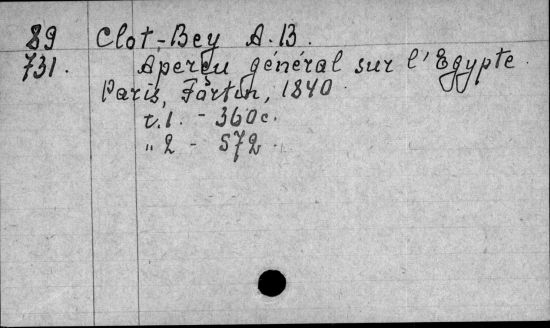 89 Clot-Bey A.B.
731. Aperçu général sur l'Egypte.
Paris, Fartin, 1840
t.1. - 360c.
" 2 - 572.